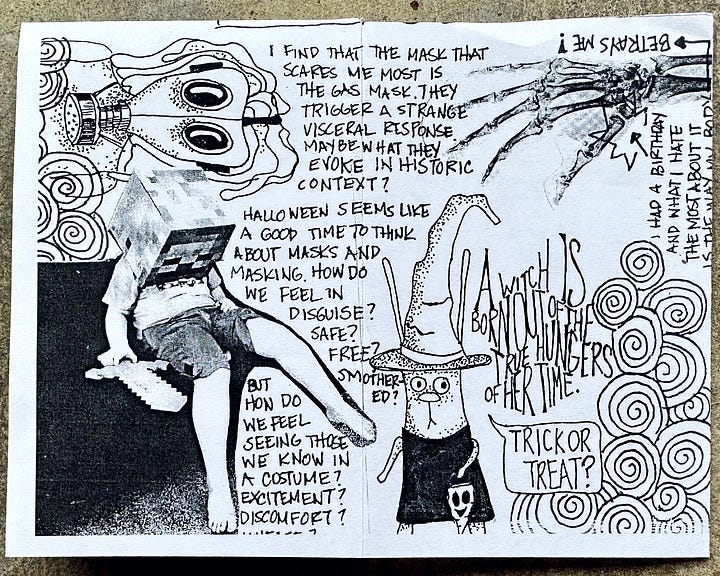 I FIND THAT THE MASK THAT
SCARES ME MOST IS
THE GAS MASK. THEY
TRIGGER A STRANGE
VISCERAL RESPONSE
MAYBE WHAT THEY
EVOKE IN HISTORIC
CONTEXT?
HALLOWEEN SEEMS LIKE
A GOOD TIME TO THINK
ABOUT MASKS AND
MASKING. HOW DO
WE FEEL IN
DISGUISE?
SAFE?
FREE?
SMOTHER-
ED?
BUT
HOW DO
WE FEEL
SEEING THOSE
WE KNOW IN
A COSTUME?
EXCITEMENT?
DISCOMFORT?
I HAD A BIRTHDAY
AND WHAT I HATE
THE MOST ABOUT IT
IS THE WAY MY BODY
BETRAYS ME!
A WITCH IS
BORN OUT OF THE
TRUE HUNGERS
OF HER TIME.
TRICK OR
TREAT?